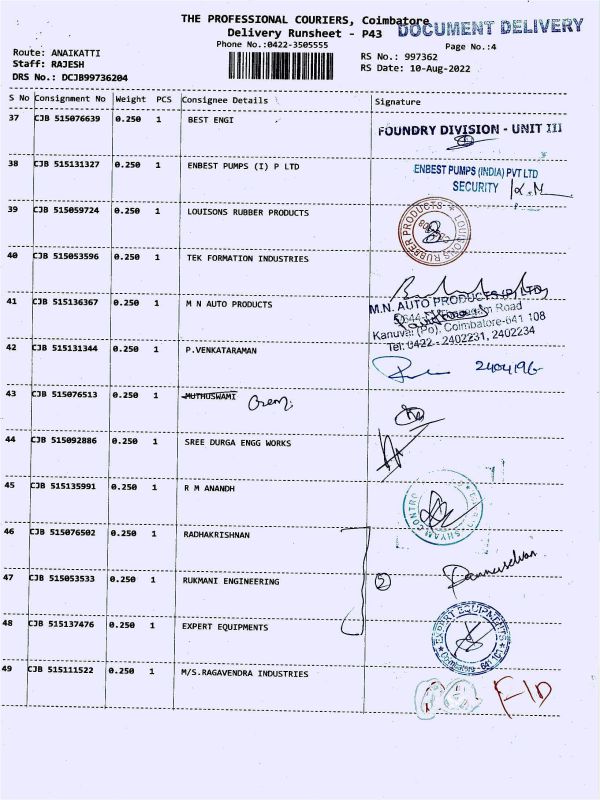 THE PROFESSIONAL COURIERS, Coimbatore
DOCUMENT DELIVERY
Delivery Runsheet - P43
Phone No.:0422-3505555
Page No.:4
Route: ANAIKATTI
RS No.: 997362
Staff: RAJESH
RS Date: 10-Aug-2022
DRS No.: DCJB99736204
S No Consignment No Weight PCS Consignee Details Signature
37 CJB 515076639 0.250 1 BEST ENGI
FOUNDRY DIVISION - UNIT III
38 CJB 515131327 0.250 1 ENBEST PUMPS (I) P LTD
ENBEST PUMPS (INDIA) PVT LTD
SECURITY
39 CJB 515059724 0.250 1 LOUISONS RUBBER PRODUCTS
LOUISONS RUBBER PRODUCTS
40 CJB 515053596 0.250 1 TEK FORMATION INDUSTRIES
41 CJB 515136367 0.250 1 M N AUTO PRODUCTS
M.N. AUTO PRODUCTS (P) LTD
Road
Kanuvai (Po), Coimbalore-641 108
Tel: 0422 - 2402231, 2402234
42 CJB 515131344 0.250 1 P.VENKATARAMAN
2404196
43 CJB 515076513 0.250 1 MUTHUSWAMI
44 CJB 515092886 0.250 1 SREE DURGA ENGG WORKS
45 CJB 515135991 0.250 1 R M ANANDH
46 CJB 515076502 0.250 1 RADHAKRISHNAN
47 CJB 515053533 0.250 1 RUKMANI ENGINEERING
5
48 CJB 515137476 0.250 1 EXPERT EQUIPMENTS
EXPERT EQUIPMENTS
49 CJB 515111522 0.250 1 M/S.RAGAVENDRA INDUSTRIES